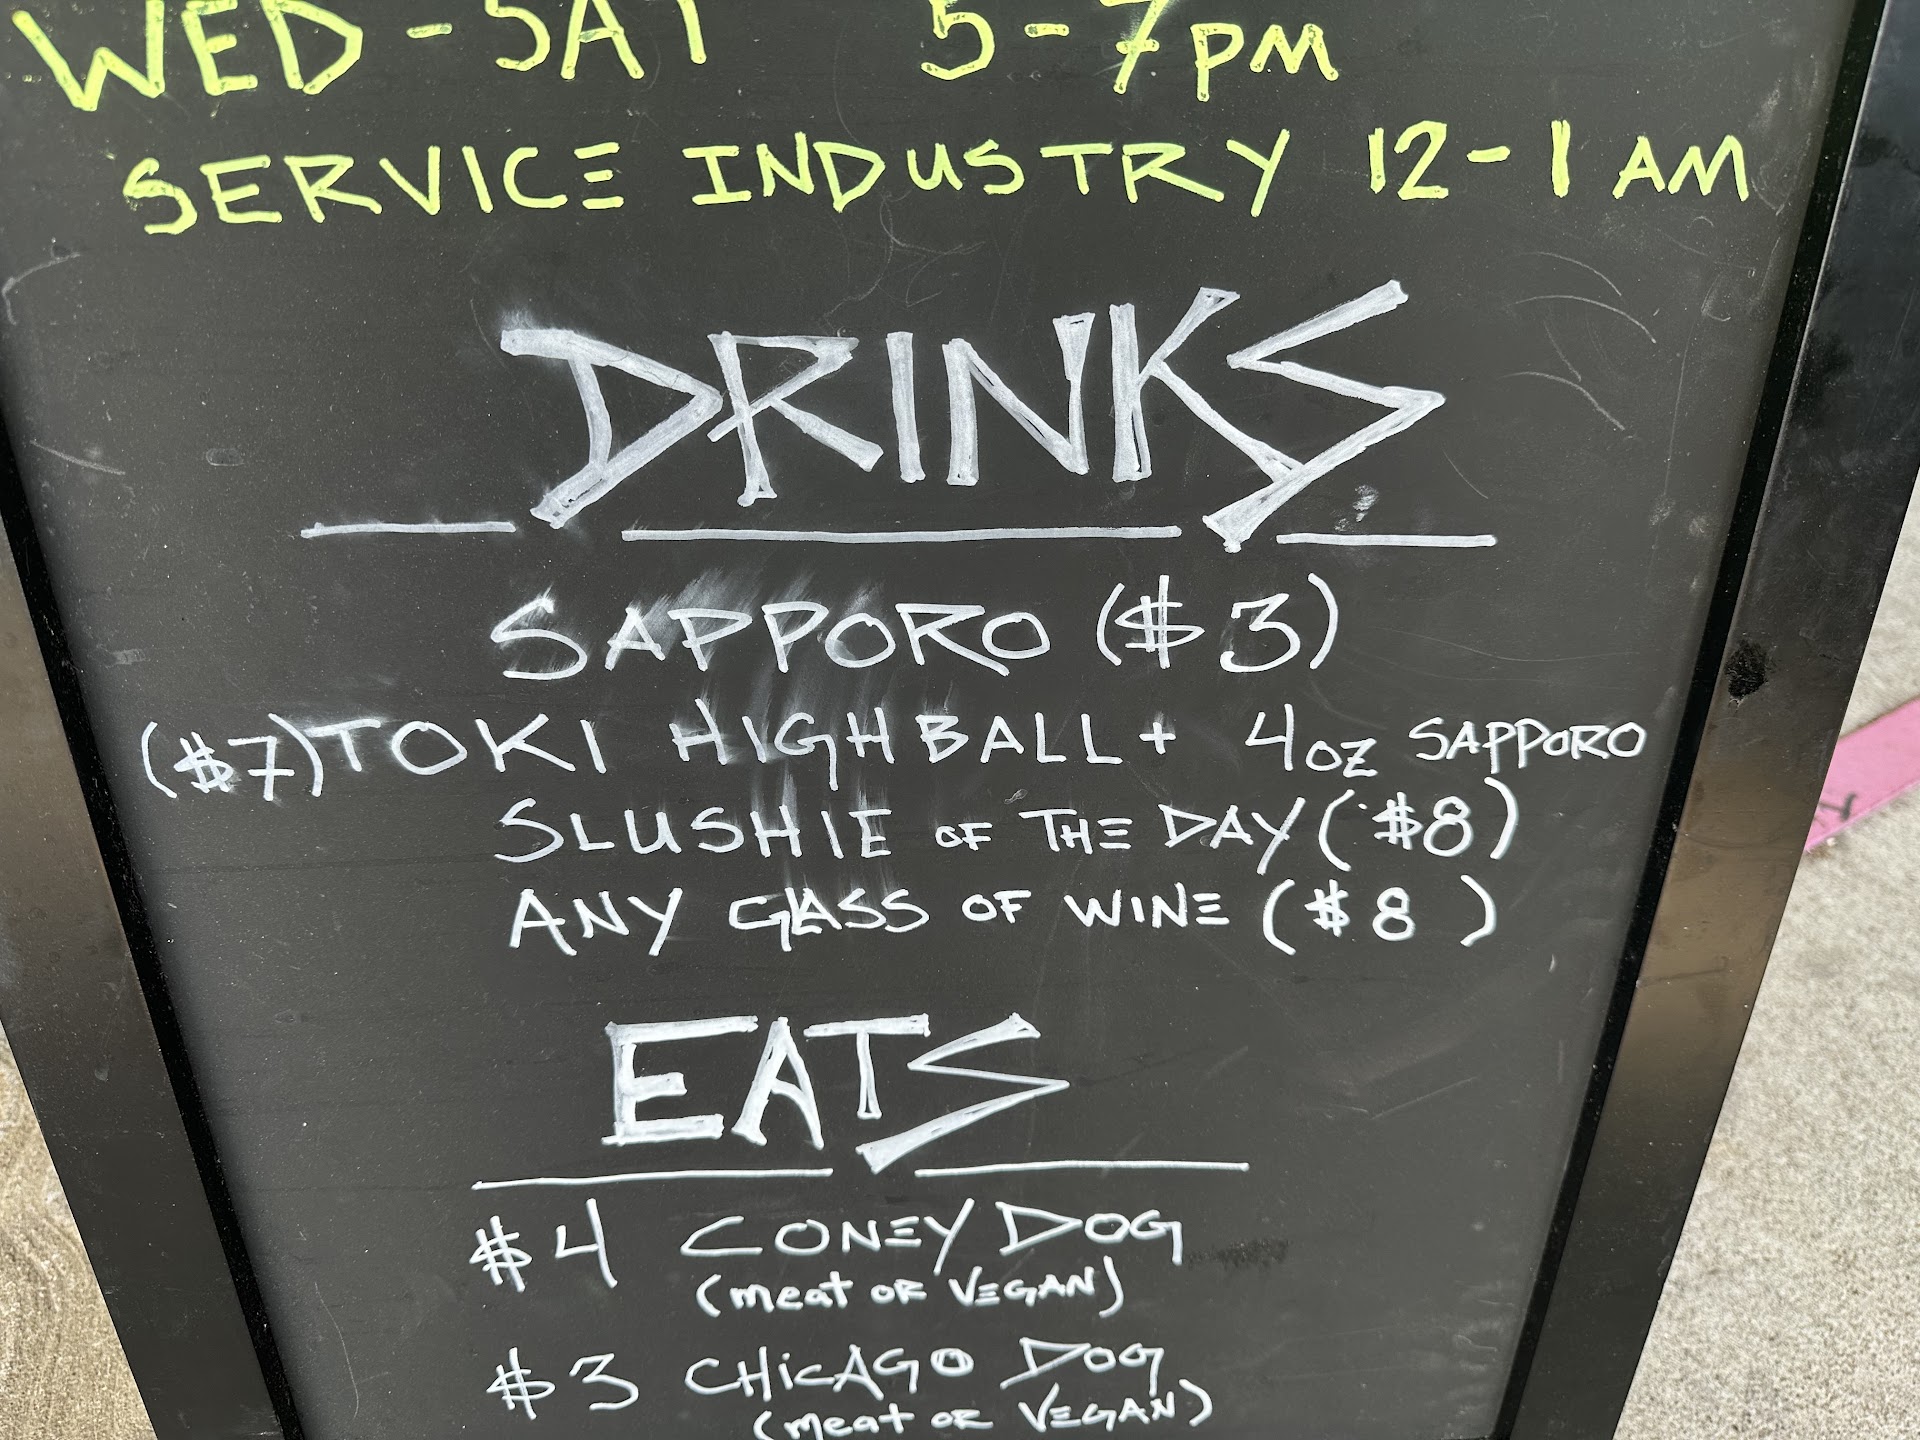 WED - SAT 5-7PM
SERVICE INDUSTRY 12-1 AM
DRINKS
SAPPORO ($3)
($7) TOKI HIGHBALL + 4oz SAPPORO
SLUSHIE OF THE DAY ($8)
ANY GLASS OF WINE ($8)
EATS
$4 CONEY DOG
(meat OR VEGAN)
$3 CHiCAGO DOG
(meat OR VEGAN)